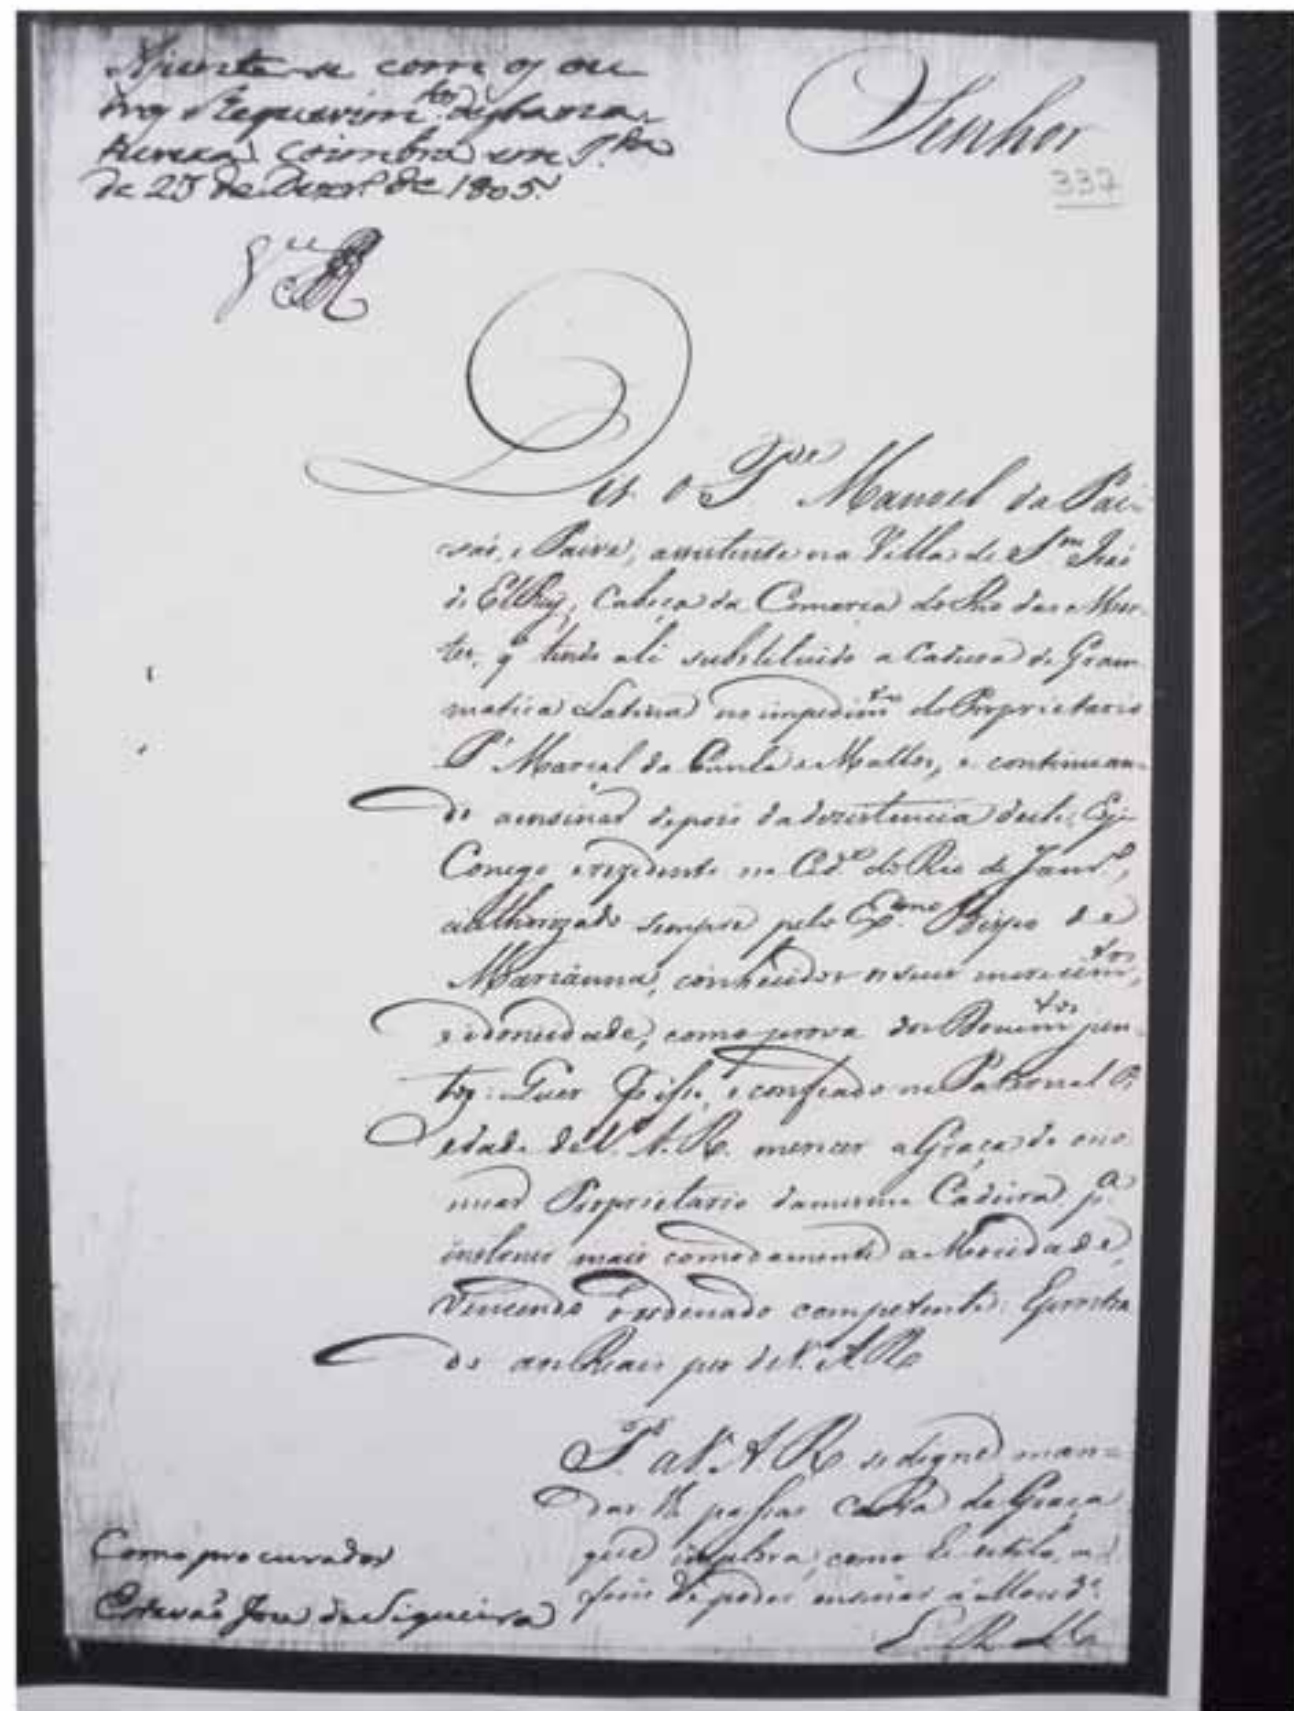 Ajunte-se com os ou
tros Requerim.tos desta na
tureza Coimbra em J.ta
de 23 de Dezr.o de 1805.
Senhor
337
Diz o P.e Manoel da Pai-
xaõ, e Paiva, assistente na Villa de S.m Joaõ
de ElRey, Cabeça da Comarca do Rio das Mor-
tes, q' tendo ali substituido a Cadeira de Gram
matica Latina no impedim.to do Proprietario
P.e Marcal da Cunha e Mattos, e continuan-
do a ensinar depois da dezistencia deste,
Conego rezidente na Cid.e do Rio de Janr.o,
authorizado sempre pelo Ex.mo Bispo de
Marianna, conhecidos os seus merecim.tos,
e idoneidade, como prova dos Docum.tos jun-
tos: Quer e confiado na Paternal Pi
edade de V. A. R. merecer a Graça de
Proprietario da mesma Cadeira p.a
instruir mais comodamente a Mocidade,
vencendo o ordenado competente: E prostra
do aos Reaes pes de V. A. R.
P. a V. A. R. se digne man=
dar passar Carta da Graça
que implora, como he estilo, a
fim de poder ensinar á Mocid.e
E. R. M.ce
Como procurador
Estevaõ Jose de Siqueira